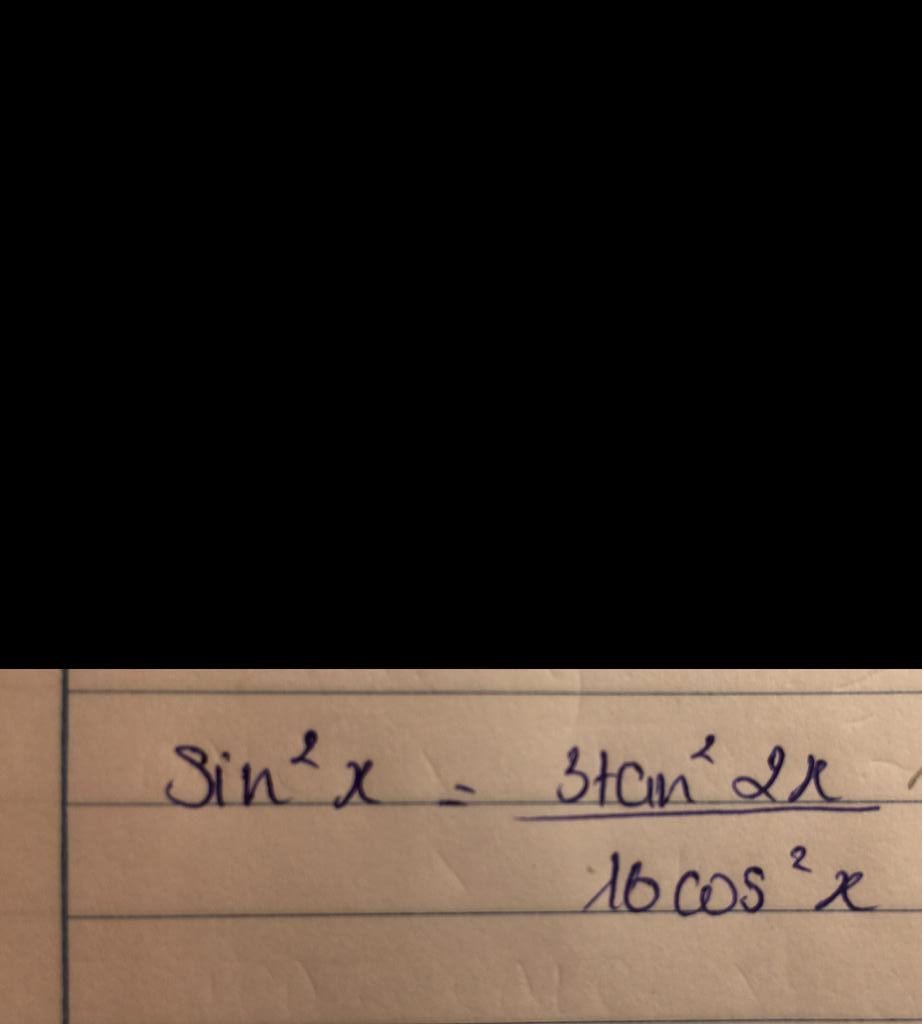 sin² x = 3tan² 2x
16cos² x